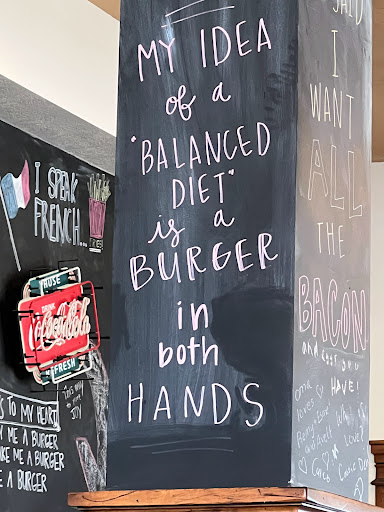 MY IDEA
of a
"BALANCED
DIET"
is a
BURGER
in
both
HANDS
I SPEAK
FRENCH...
FRIES
PAUSE
DRINK
Coca-Cola
REFRESH
TO MY HEART
ME A BURGER
ME A BURGER
E A BURGER
SAID
I
WANT
ALL
THE
BACON
and eggs you
HAVE!
loves
Love